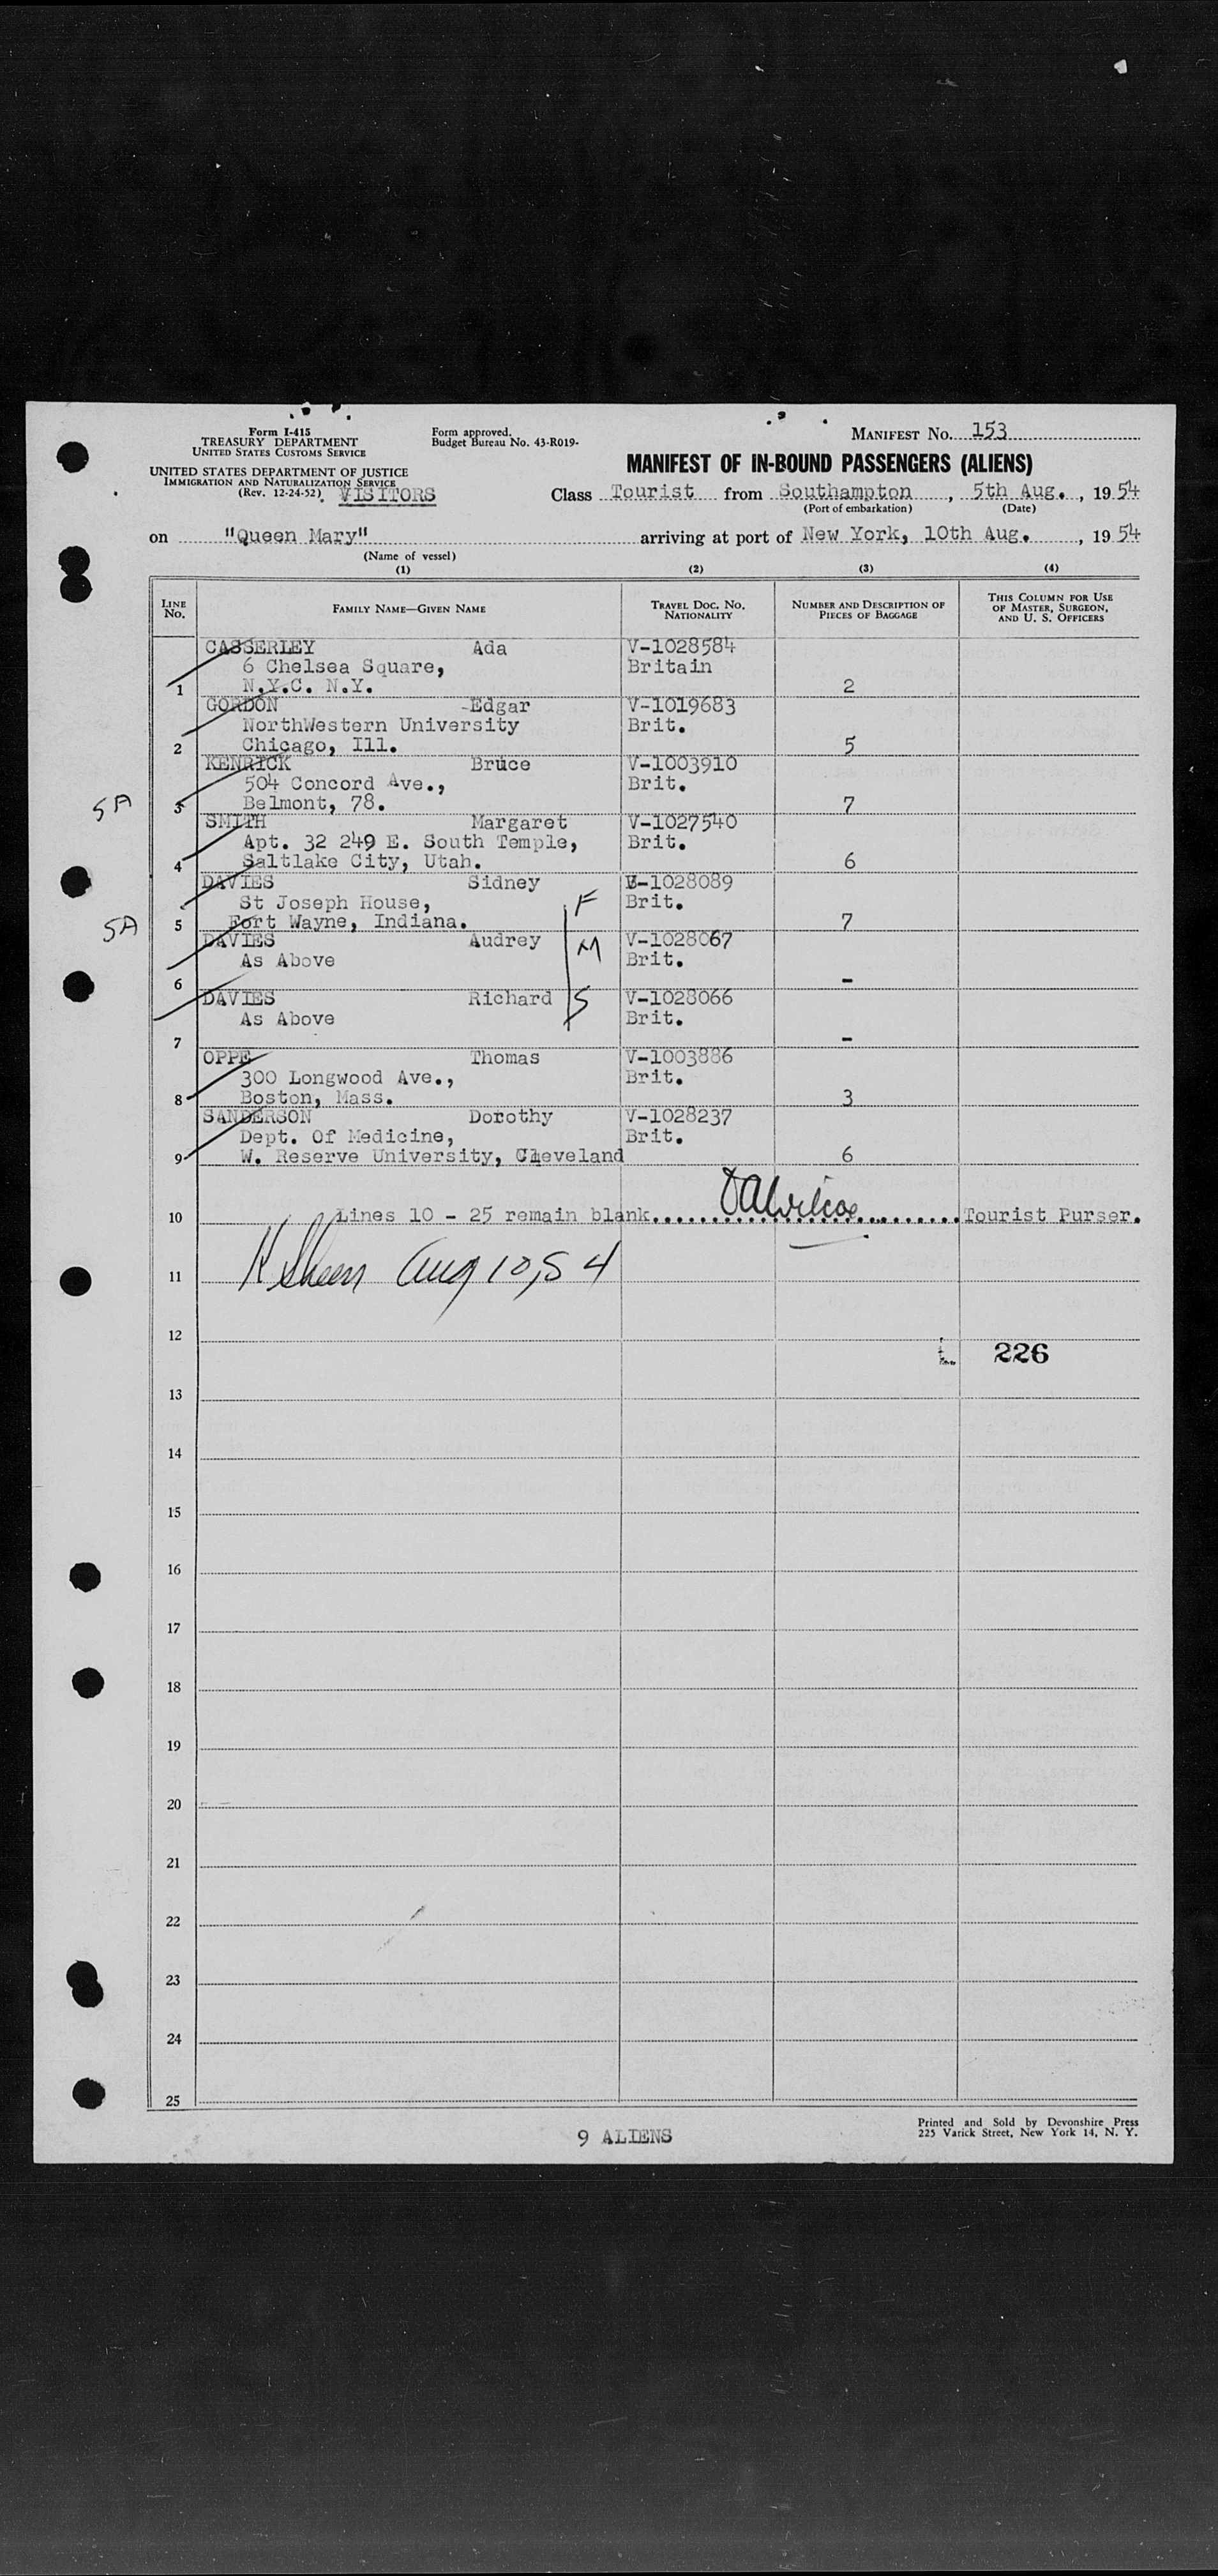 Form I-415
TREASURY DEPARTMENT
UNITED STATES CUSTOMS SERVICE
UNITED STATES DEPARTMENT OF JUSTICE
IMMIGRATION AND NATURALIZATION SERVICE
(Rev. 12-24-52) VISITORS
Form approved.
Budget Bureau No. 43-R019-
MANIFEST NO. 153
MANIFEST OF IN-BOUND PASSENGERS (ALIENS)
Class Tourist from Southampton, 5th Aug., 1954
(Port of embarkation) (Date)
on "Queen Mary" arriving at port of New York, 10th Aug., 1954
(Name of vessel)
(1) (2) (3) (4)
LINE NO. FAMILY NAME—GIVEN NAME TRAVEL DOC. NO. NATIONALITY NUMBER AND DESCRIPTION OF PIECES OF BAGGAGE THIS COLUMN FOR USE OF MASTER, SURGEON, AND U. S. OFFICERS
CASSERLEY Ada V-1028584
6 Chelsea Square, Britain
1 N.Y.C. N.Y. 2
GORDON -Edgar V-1019683
NorthWestern University Brit.
2 Chicago, Ill. 5
KENRICK Bruce V-1003910
504 Concord Ave., Brit.
SA 3 Belmont, 78. 7
SMITH Margaret V-1027540
Apt. 32 249 E. South Temple, Brit.
4 Saltlake City, Utah. 6
DAVIES Sidney V-1028089
St Joseph House, F Brit.
SA 5 Fort Wayne, Indiana. 7
DAVIES Audrey M V-1028067
As Above Brit.
6 -
DAVIES Richard S V-1028066
As Above Brit.
7 -
OPPE Thomas V-1003886
300 Longwood Ave., Brit.
8 Boston, Mass. 3
SANDERSON Dorothy V-1028237
Dept. Of Medicine, Brit.
9 W. Reserve University, Cleveland 6
10 Lines 10 - 25 remain blank. Tourist Purser.
11 Aug 10, 54
12
226
13
14
15
16
17
18
19
20
21
22
23
24
25
9 ALIENS
Printed and Sold by Devonshire Press
225 Varick Street, New York 14, N. Y.